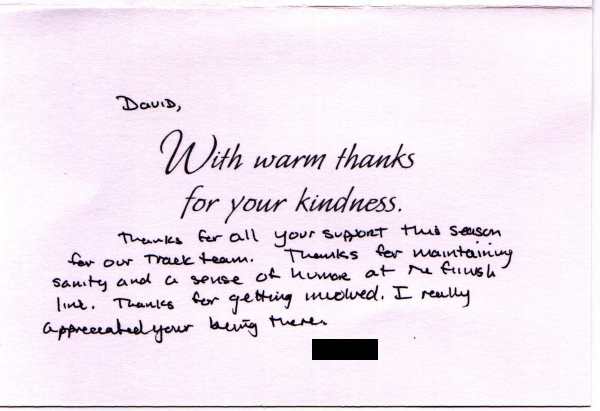 David,
With warm thanks
for your kindness.
Thanks for all your support this season
for our Track team. Thanks for maintaining
sanity and a sense of humor at the finish
line. Thanks for getting involved. I really
appreciated your being there.